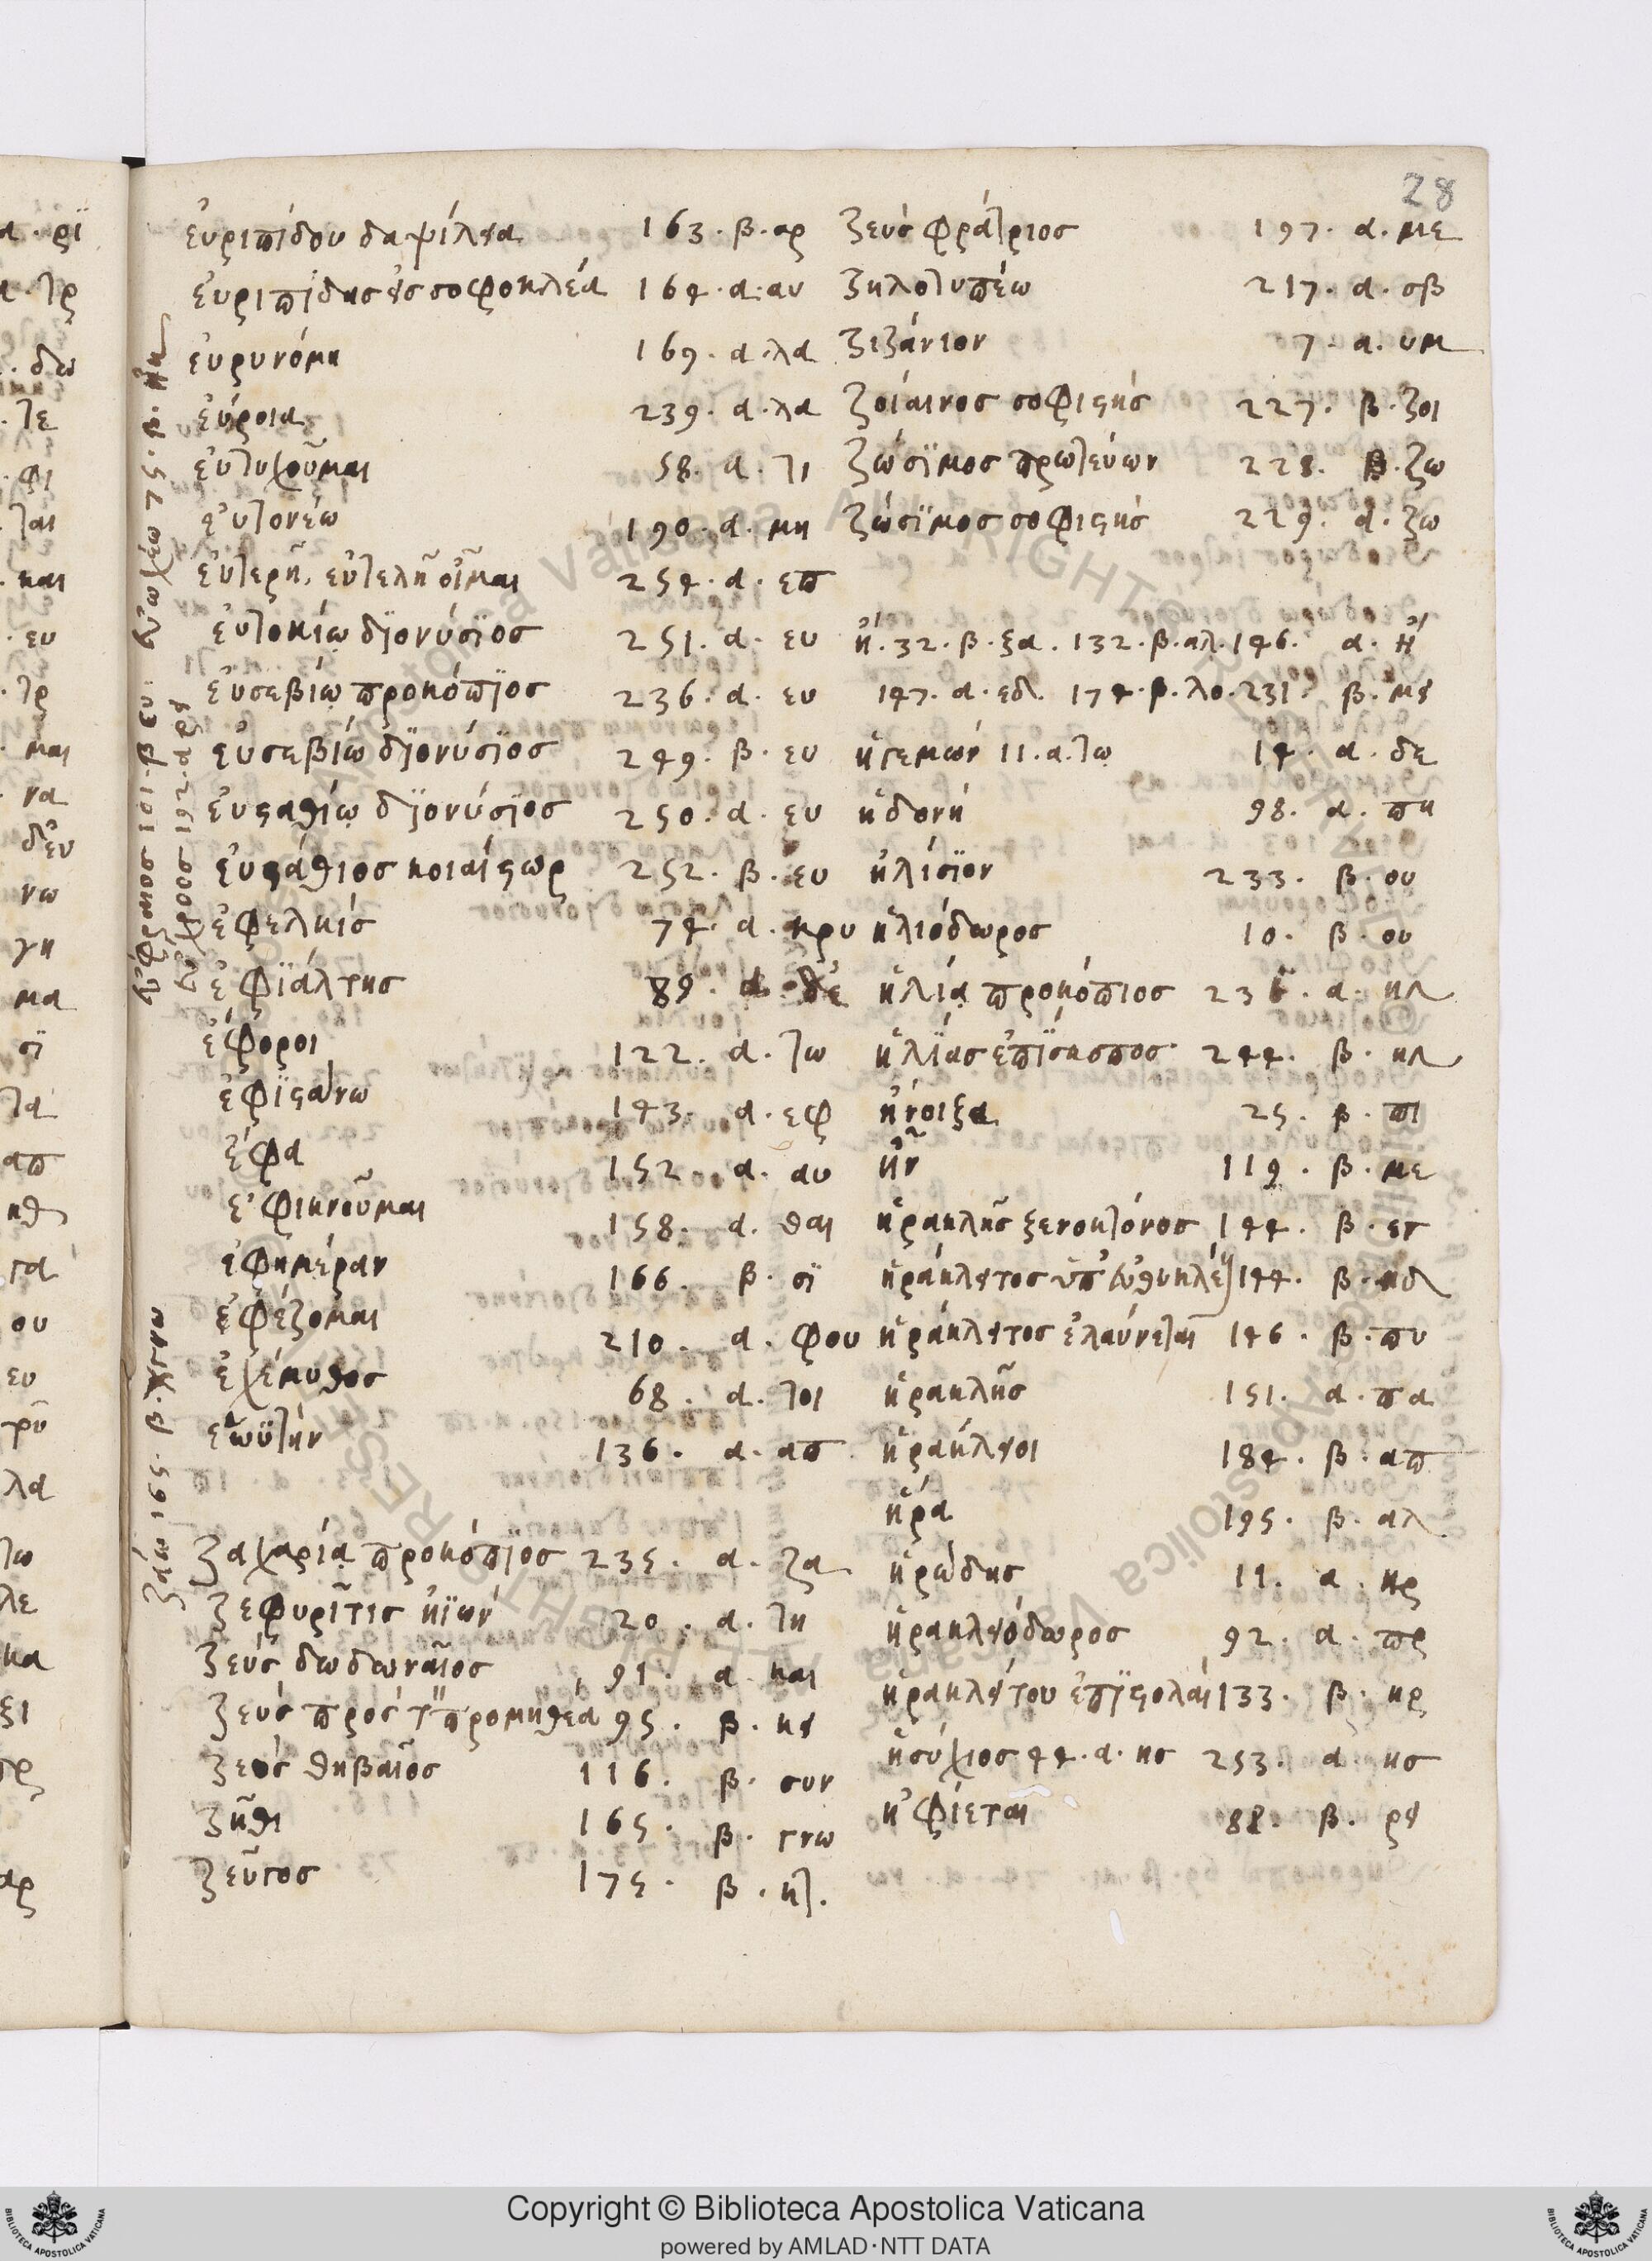 28
εὐριπίδου δαψίλεια 163. β. αρ
εὐριπίδης εἰς σοφοκλέα 164. α. αυ
εὐρυνόμη 169. α. λα
εὔροια 239. α. λα
εὐτυχοῦμαι 58. α. τι
εὐτονέω 190. α. μη
εὐτερῆ, εὐτελῆ οἶμαι 254. α. επ
εὐτοκίῳ διονύσϊος 251. α. ευ
εὐσεβίῳ προκόπϊος 236. α. ευ
εὐσεβίῳ διονύσϊος 249. β. ευ
εὐσταθίῳ διονύσϊος 250. α. ευ
εὐστάθιος κοιαίστωρ 252. β. ευ
ἐφελκίς 74. α. κρυ
ἐφϊάλτης 89. α.
ἔφοροι 122. α. τω
ἐφϊστάνω 143. α. εφ
ἔφα 152. α. αυ
ἐφικνοῦμαι 158. α. θαι
ἐφημέραν 166. β. σϊ
ἐφέζομαι 210. α. φου
ἐχέμυθος 68. α. τοι
ἑωϋτὴν 136. α. απ
ζαχαρίᾳ προκόπιος 235. α. ζα
ζεφυρῖτις ἠϊών 20. α. τη
ζεὺς δωδωναῖος 91. α. και
ζεὺς πρὸς τ προμηθέα 95. β. κει
ζεὺς θηβαῖος 116. β. συν
ζῆθι 165. β. γνω
ζεῦγος 175. β. κτ.
ζεὺς φράτριος 197. α. με
ζηλοτυπέω 217. α. σβ
ζιζάνιον 7. α. υμ
ζοίαινος σοφιστής 227. β. ζοι
ζώσϊμος πρωτεύων 228. β. ζω
ζώσϊμος σοφιστής 229. α. ζω
ἤ. 32. β. ξα. 132. β. αλ. 146. α. ἤ
147. α. εδ. 174. β. λο. 231. β. μει
ἡγεμών 11. α. τω 14. α. δε
ἡδονή 98. α. πη
ἠλίσϊον 233. β. ου
ἡλιόδωρος 10. β. ου
ἡλίᾳ προκόπιος 236. α. ηλ
ἡλϊάς ἐπϊσκοπος 244. β. ηλ
ἤνοιξα 25. β. πι
ἦν 119. β. με
ἡρακλῆς ξενοκτόνος 144. β. εγ
ἡράκλειτος ὑπ' εὐθυκλέ 144. β. ηδ
ἡράκλειτος ἐλαύνεται 146. β. πυ
ἡρακλῆς 151. α. πα
ἡράκλειοι 184. β. απ
ἥρα 195. β. αλ
ἡρώδης 11. α. κρ
ἡρακλειόδωρος 92. α. πρ
ἡρακλείτου ἐπϊστολαί 133. β. κρ
ἡσύχιος 44. α. ησ 253. α. ησ
ἠφίεται 88. β. ρει
εὐωχέω 75. β. ἡκ
εὐφραιος 101. β ευ.
εὔχροος 192. α ρει
ζάω 165. β. γνω
Copyright © Biblioteca Apostolica Vaticana
powered by AMLAD·NTT DATA